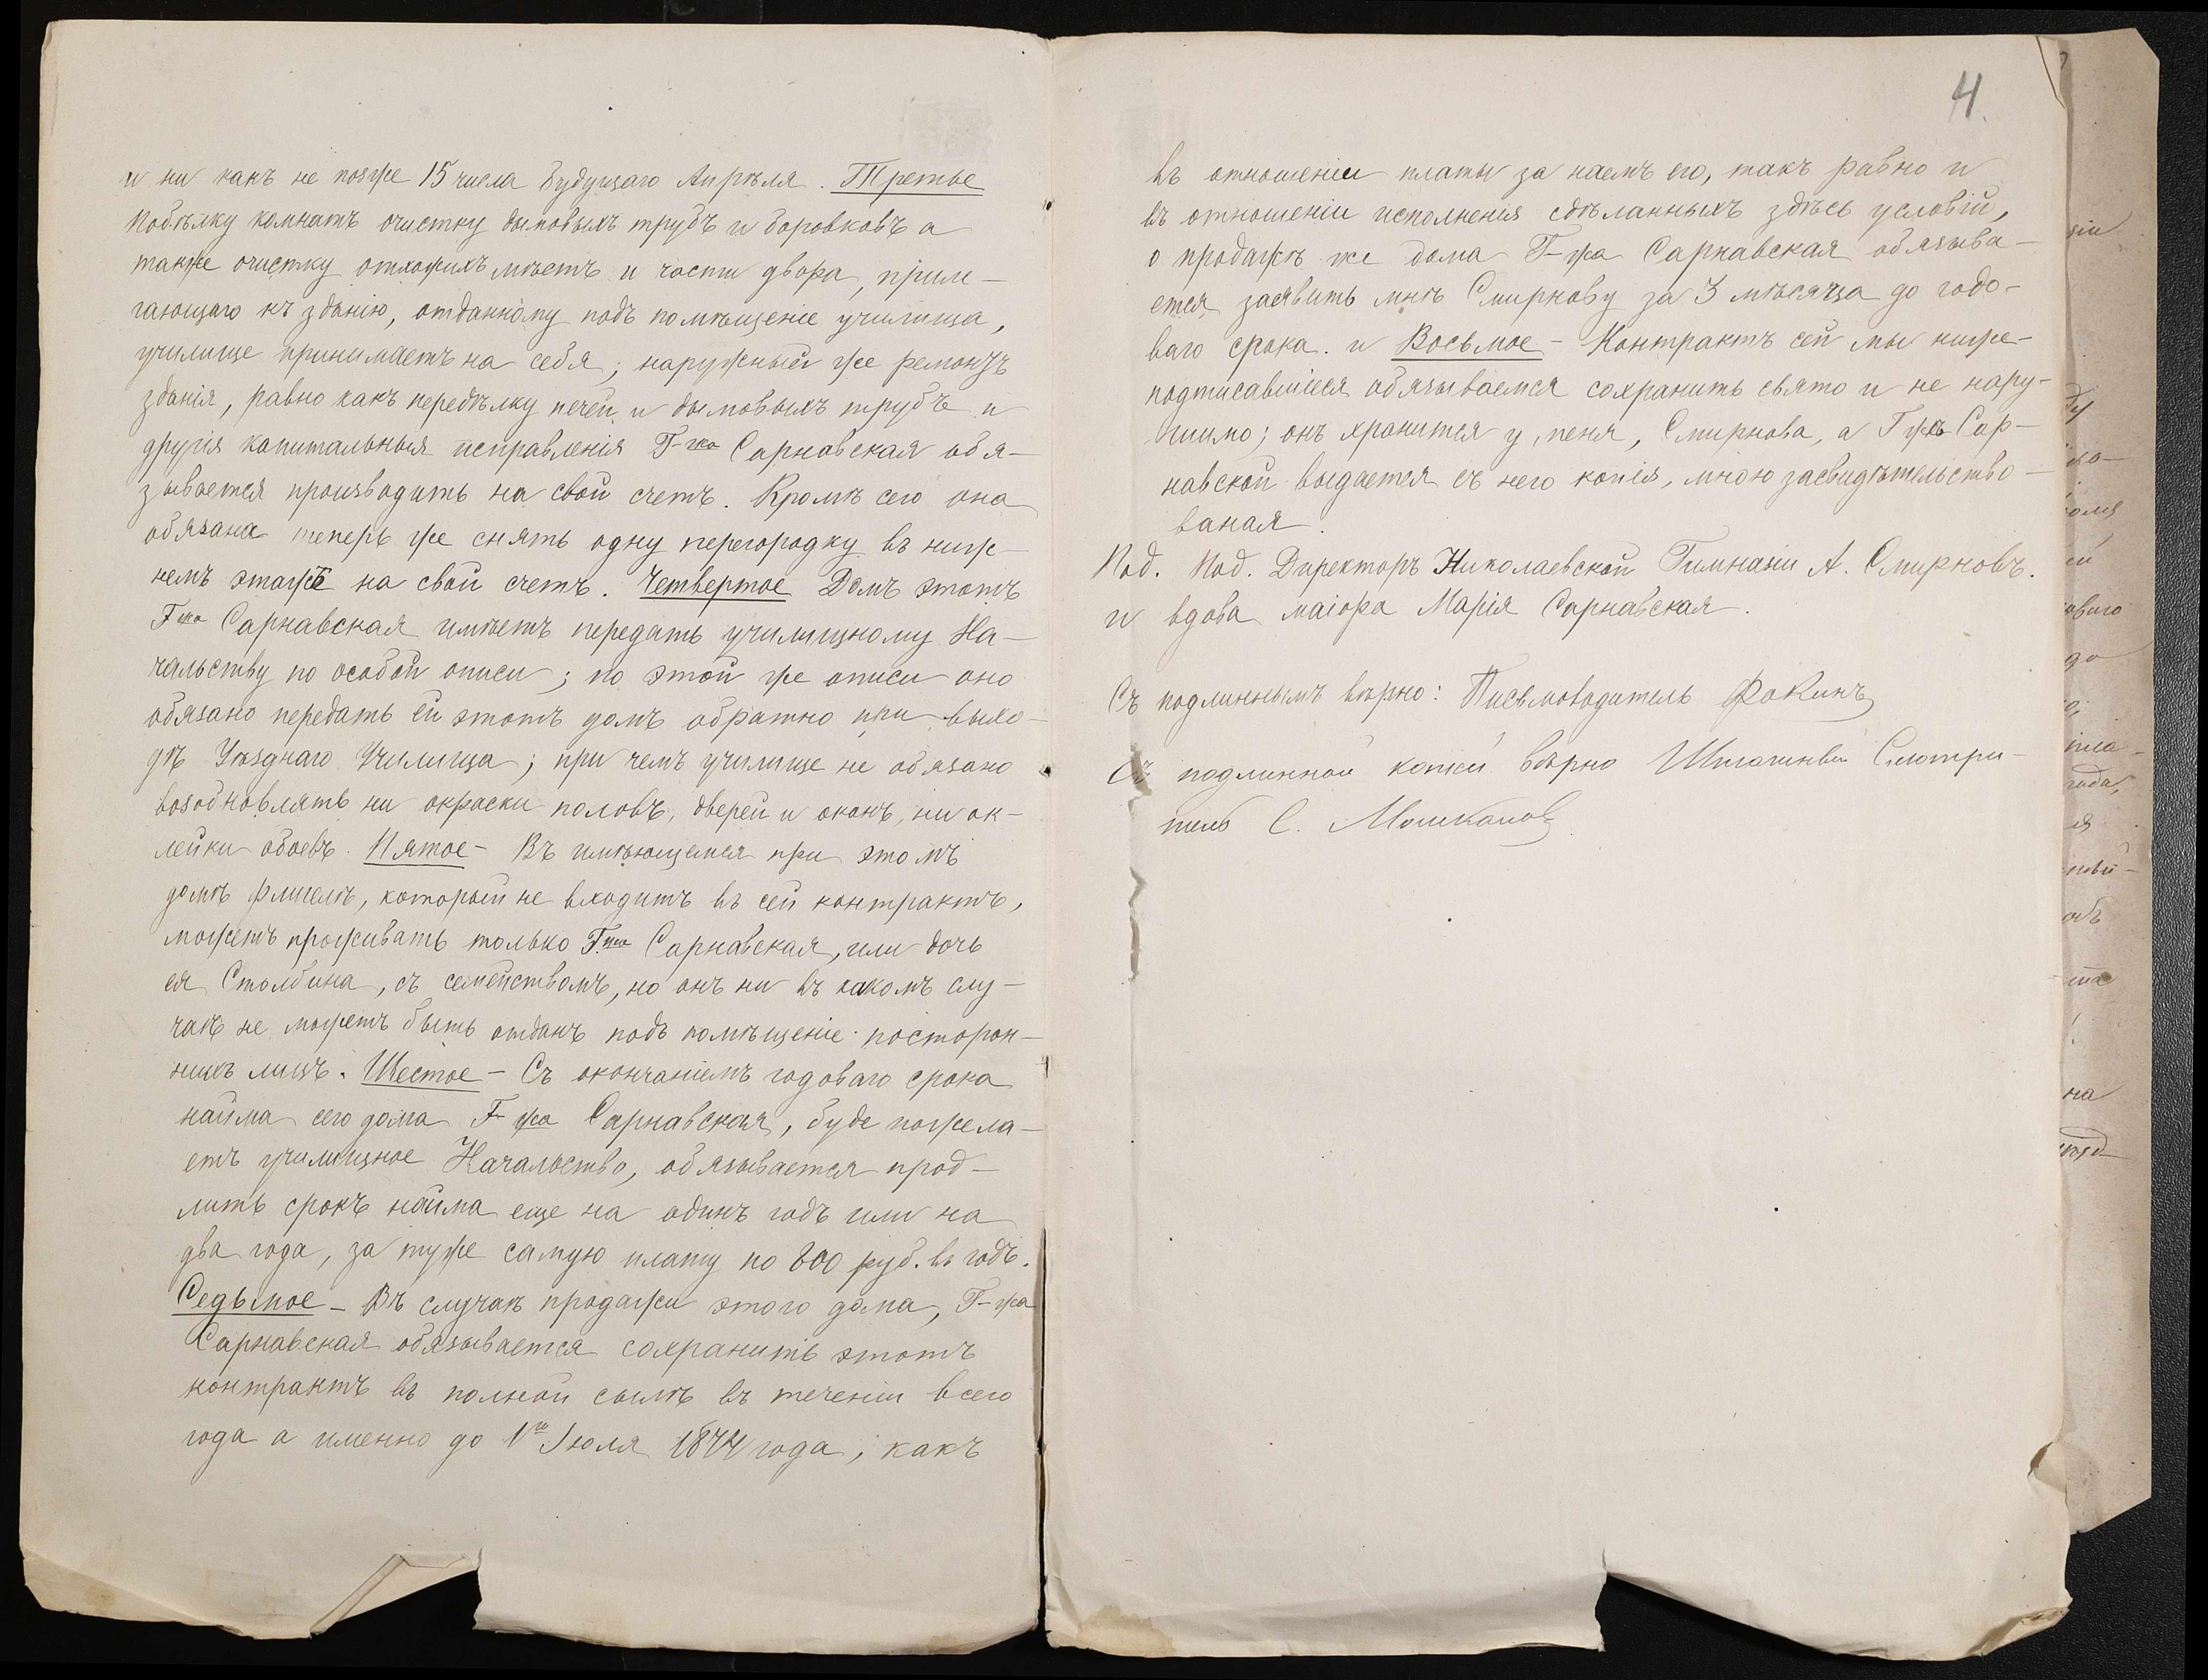 и ни какъ не позже 15 числа будущаго Апрѣля. Третье
Побѣлку комнатъ очистку дымовыхъ трубъ и боровковъ а
также очистку отхожихъ мѣстъ и части двора, приле-
гающаго къ зданію, отданному подъ помѣщеніе училища,
училище принимаетъ на себя; наружный же ремонтъ
зданія, равно какъ передѣлку печей и дымовыхъ трубъ и
другія капитальныя исправленія Г-жа Сарнавская обя-
зывается производить на свой счетъ. Кромѣ сего она
обязана теперь же снять одну перегородку въ ниж-
немъ этажѣ на свой счетъ. Четвертое Домъ этотъ
Г-жа Сарнавская имѣетъ передать училищному На-
чальству по особой описи; по этой же описи оно
обязано передать ей этотъ домъ обратно при выхо-
дѣ Уѣзднаго Училища; при чемъ училище не обязано
возобновлять ни окраски половъ, дверей и оконъ, ни ок-
лейки обоевъ. Пятое - Въ имѣющемся при этомъ
домѣ флигелѣ, который не входитъ въ сей контрактъ,
можетъ проживать только Г-жа Сарнавская, или дочь
ея Столбина, съ семействомъ, но онъ ни въ какомъ слу-
чаѣ не можетъ быть отданъ подъ помѣщеніе посторон-
нихъ лицъ. Шестое - Съ окончаніемъ годоваго срока
найма сего дома Г-жа Сарнавская, буде пожела-
етъ училищное Начальство, обязывается прод-
лить срокъ найма еще на одинъ годъ или на
два года, за туже самую плату по 800 руб. въ годъ.
Седьмое - Въ случаѣ продажи этого дома, Г-жа
Сарнавская обязывается сохранить этотъ
контрактъ въ полной силѣ въ теченіи всего
года а именно до 1го Іюля 1874 года, какъ
4
въ отношеніи платы за наемъ его, такъ равно и
въ отношеніи исполненія сдѣланныхъ здѣсь условій,
о продажѣ же дома Г-жа Сарнавская обязыва-
ется заявить мнѣ Смирнову за 3 мѣсяца до годо-
ваго срока. и Восьмое - Контрактъ сей мы ниже-
подписавшіеся обязываемся сохранить свято и не нару-
шимо; онъ хранится у меня, Смирнова, а Г-жѣ Сар-
навской выдается съ него копія, мною засвидѣтельство-
ваная.
Под. Под. Директоръ Николаевской Гимназіи А. Смирновъ.
и вдова маіора Марія Сарнавская.
Съ подлиннымъ вѣрно: Письмоводитель Фокинъ
Съ подлинной копіей вѣрно Штатный Смотри-
тель С.